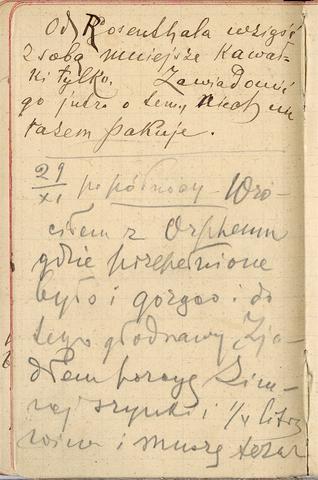 Od Rosenthala wziąść
z sobą mniejsze kawał-
ki tylko. Zawiadomić
go jutro o tem, niech mi
razem pakuje.
29/XI po północy – Wró-
ciłem z Orpheum
gdzie przepełnione
było i gorąco i do
tego głodnawy. Zja-
dłem porcyę zim-
nej szynki i 1/4 litra
wina i muszę teraz